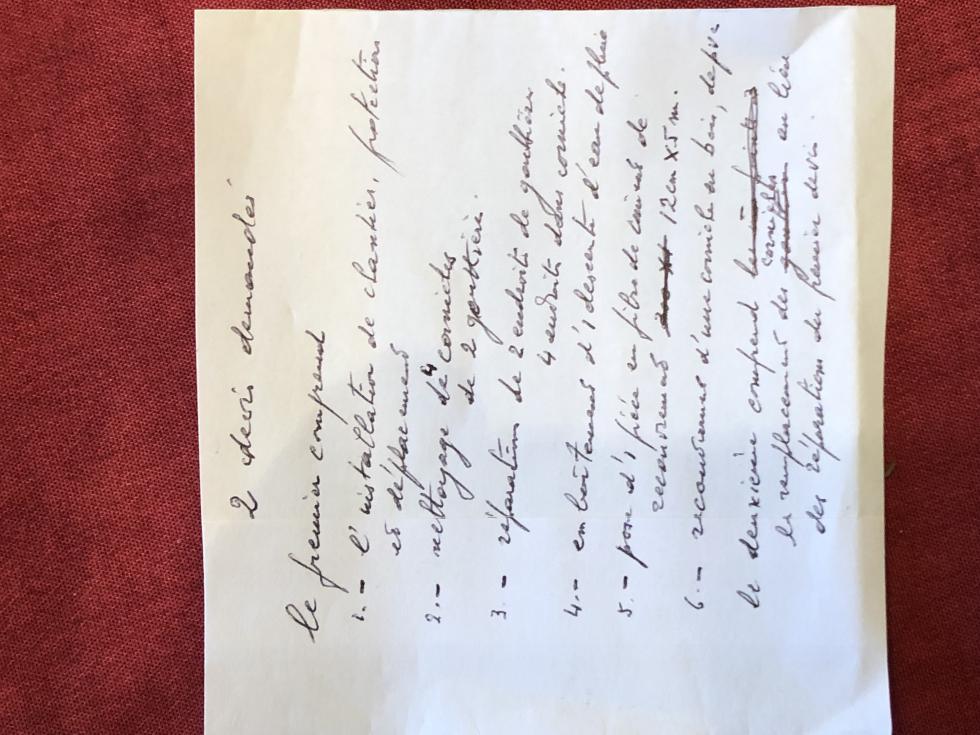 2 devis demandés
le premier comprend
1.- l'installation de chantier, protection
et déplacement
2.- nettoyage de 4 corniches
de 2 gouttière.
3.- réparation de 2 endroits de gouttière
4 endroits dans corniche.
4.- emboîtement d'1 descente d'eau de pluie
5.- pose d'1 pièce en fibrociment de
recouvrement 12 cm x 5 m.
6.- recouvrement d'une corniche en bois,
le deuxième comprend
le remplacement des corniches en lieu
des réparations du premier devis.